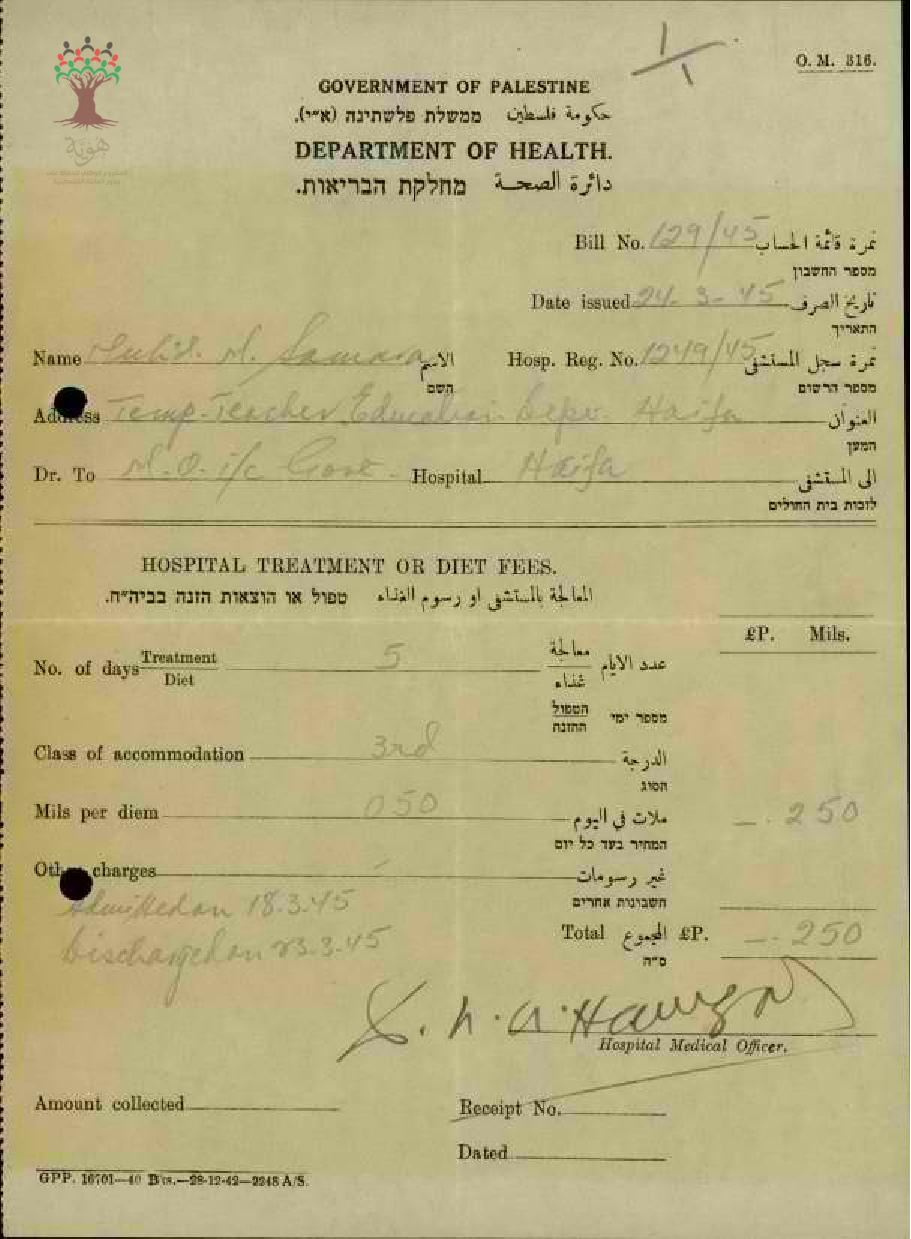 1/1
O. M. 316.
هوية
GOVERNMENT OF PALESTINE
حكومة فلسطين ממשלת פלשתינה (א״י).
DEPARTMENT OF HEALTH.
دائرة الصحة מחלקת הבריאות.
Bill No. 129/45 نمرة قائمة الحساب
מספר החשבון
Date issued 24-3-45 تاريخ الصرف
התאריך
Name M. Samara الاسم Hosp. Reg. No. 1249/45 نمرة سجل المستشفى
השם מספר הרשום
Address Temp. Teacher Education Dept. Haifa العنوان
המען
Dr. To M.O. i/c Govt. Hospital Haifa الى المستشفى
לזכות בית החולים
HOSPITAL TREATMENT OR DIET FEES.
المعالجة بالمستشفى او رسوم الغذاء טפול או הוצאות הזנה בביה״ח.
£P. Mils.
No. of days Treatment 5 معالجة عدد الايام
Diet غذاء
הטפול מספר ימי
ההזנה
Class of accommodation 3rd الدرجة
הסוג
Mils per diem 050 ملات في اليوم —. 250
המחיר בעד כל יום
Other charges - غير رسومات
חשבונות אחרים
Admitted on 18.3.45
Discharged on 23.3.45
Total المجموع £P. —. 250
ס״ה
Hospital Medical Officer.
Amount collected Receipt No.
Dated
GPP. 16701—40 Bts.—28-12-42—2248 A/S.